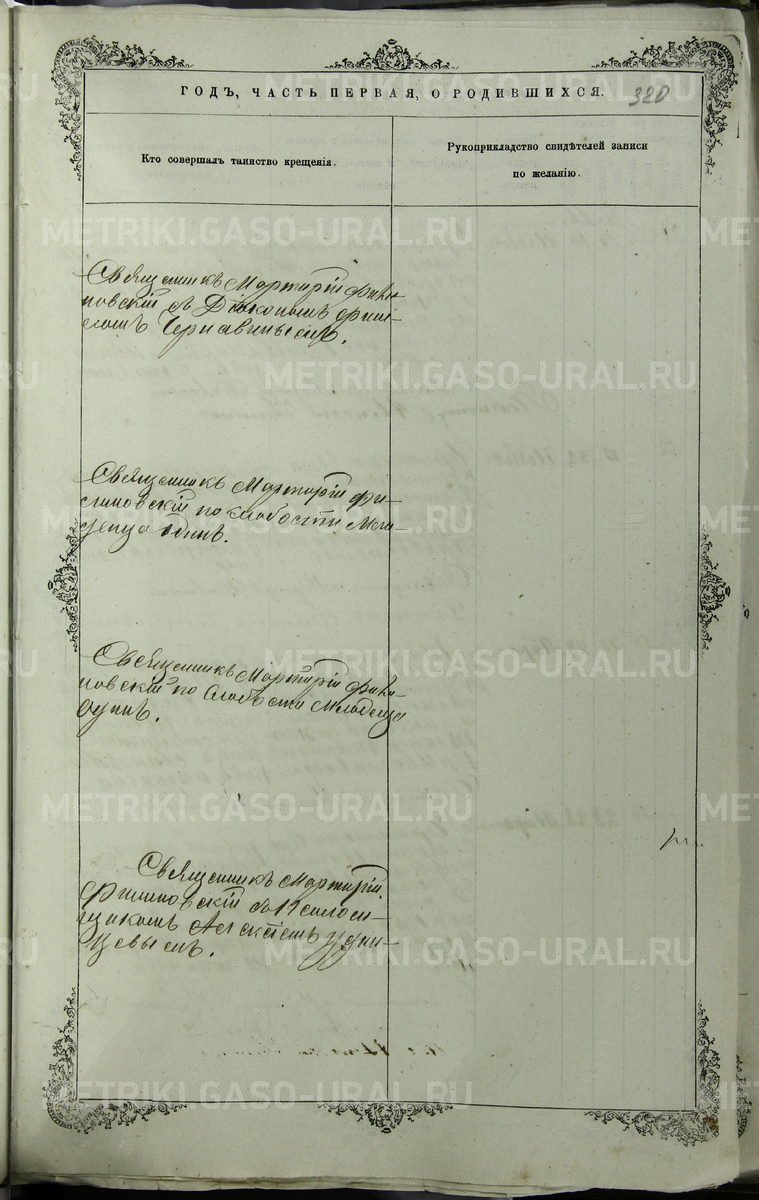 ГОДЪ, ЧАСТЬ ПЕРВАЯ, О РОДИВШИХСЯ.
320
Кто совершалъ таинство крещенія.
Рукоприкладство свидѣтелей записи
по желанію.
Священникъ Мартирій Фили-
повскій съ Діакономъ
Чернавинымъ.
Священникъ Мартирій Фи-
липовскій по слабости мла-
денца одинъ.
Священникъ Мартирій Фили-
повскій по слабости младенца
одинъ.
Священникъ Мартирій
Филиповскій съ Псалом-
щикомъ Алексіемъ Удин-
цевымъ.
METRIKI.GASO-URAL.RU